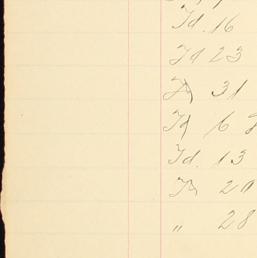 Id. 16
Id 23
Id 31
Id 6
Id. 13
Id 20
" 28